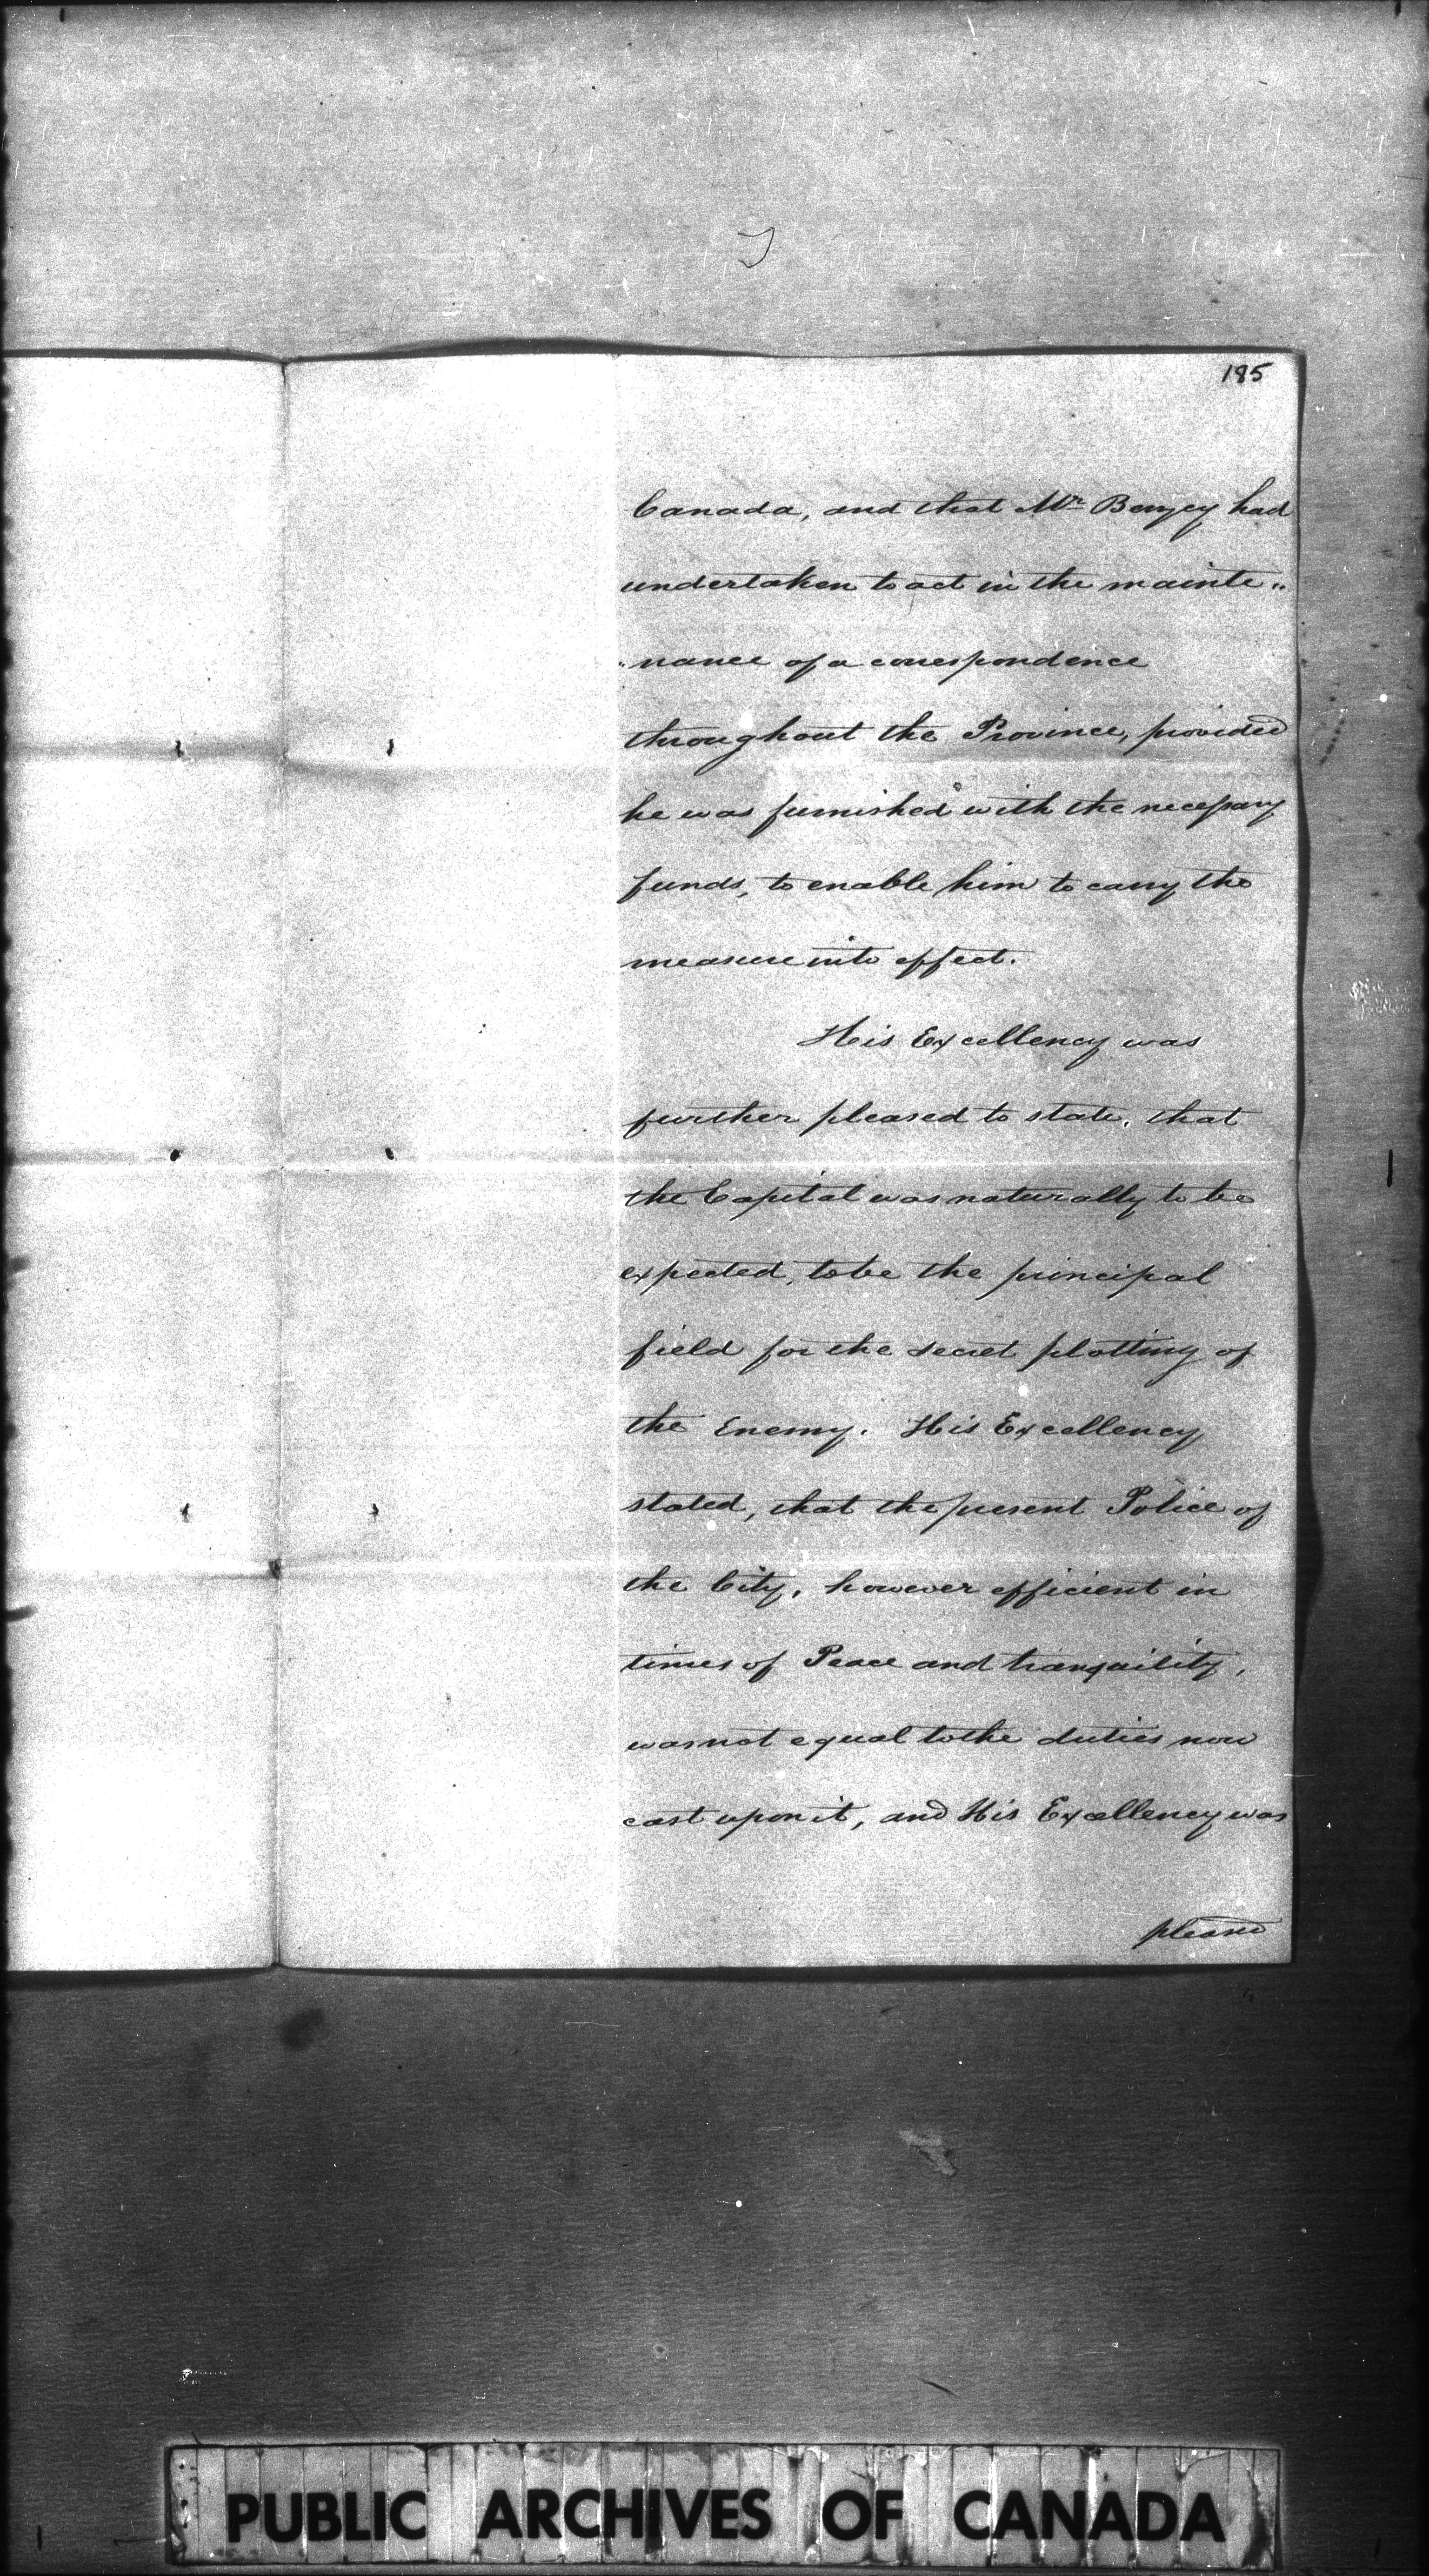 185
Canada, and that Mr Berczy had
undertaken to act in the mainte„
„nance of a correspondence
throughout the Province, provided
he was furnished with the necessary
funds, to enable him to carry the
measure into effect.
His Excellency was
further pleased to state, that
the Capital was naturally to be
expected, to be the principal
field for the secret plotting of
the Enemy. His Excellency
stated, that the present Police of
the City, however efficient in
times of Peace and tranquility,
was not equal to the duties now
cast upon it, and His Excellency was
pleased
PUBLIC ARCHIVES OF CANADA